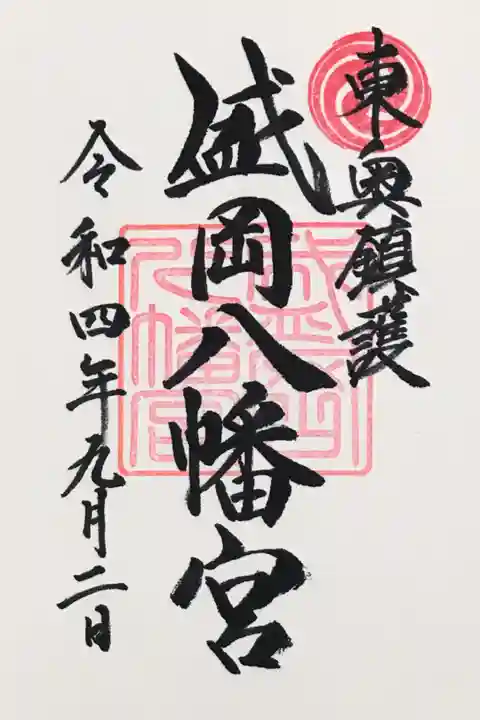 東奥鎮護
盛岡八幡宮
盛岡八幡宮
令和四年九月二日